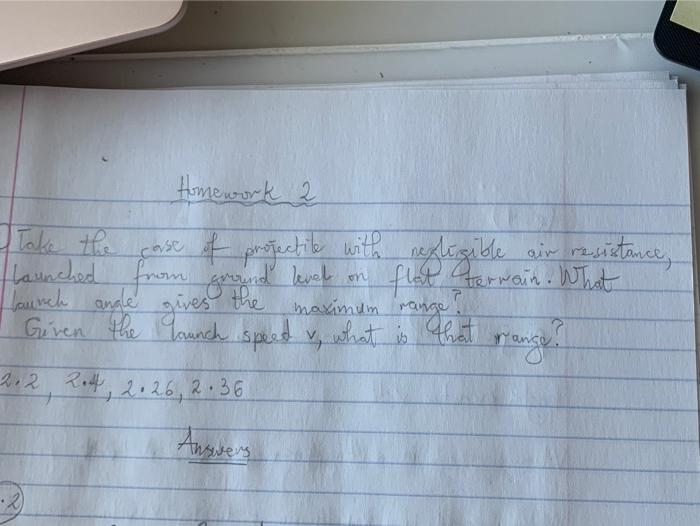 Homework 2
Take the case of projectile with negligible air resistance,
launched from ground level on flat terrain. What
launch angle gives the maximum range?
Given the launch speed v, what is that range?
2.2, 2.4, 2.26, 2.36
Answers
.2